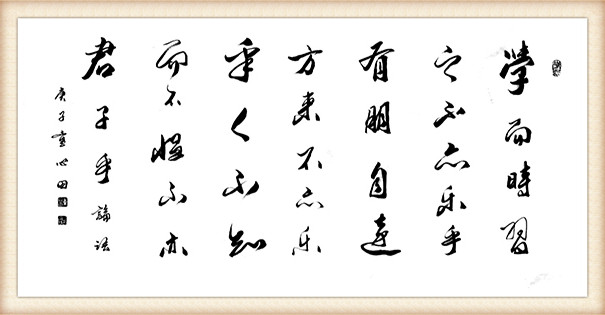 學而時習
之不亦乐乎
有朋自遠
方来不亦乐
乎人不知
而不愠不亦
君子乎論語
庚子心田